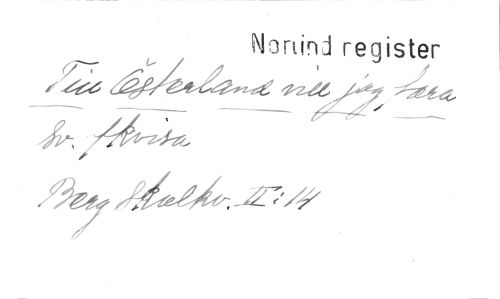 Norund register
Till Österland vill jag fara
Sv. fkvisa
Berg Skolkv. II:14